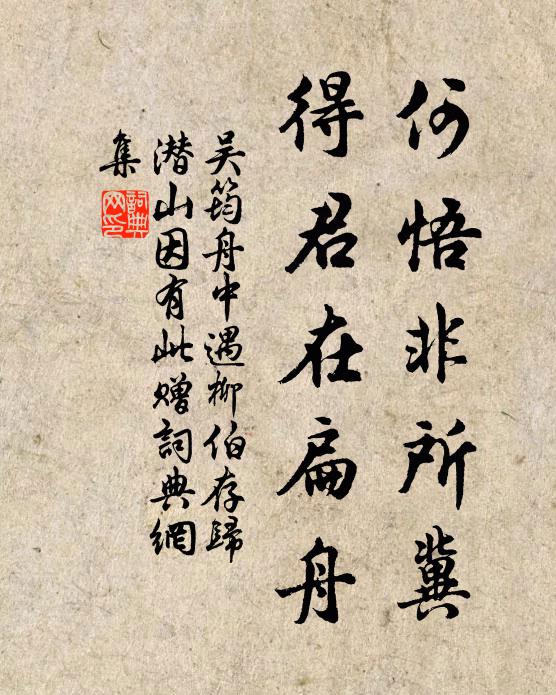 何悟非所冀
得君在扁舟
吴筠舟中遇柳伯存歸
潜山因有此赠詞典網
集
詞典網印